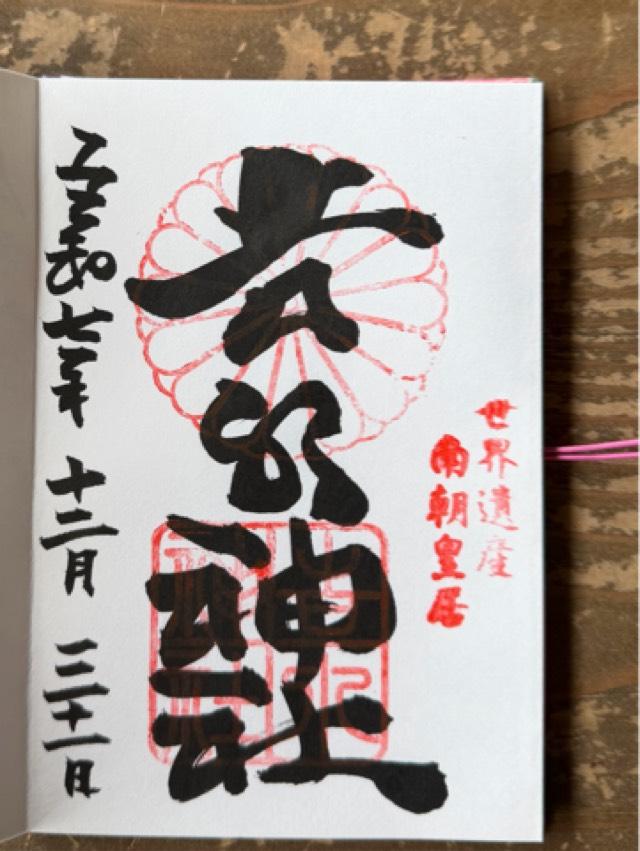 世界遺産
南朝皇居
吉水神社
吉水神社
令和七年 十二月 三十一日